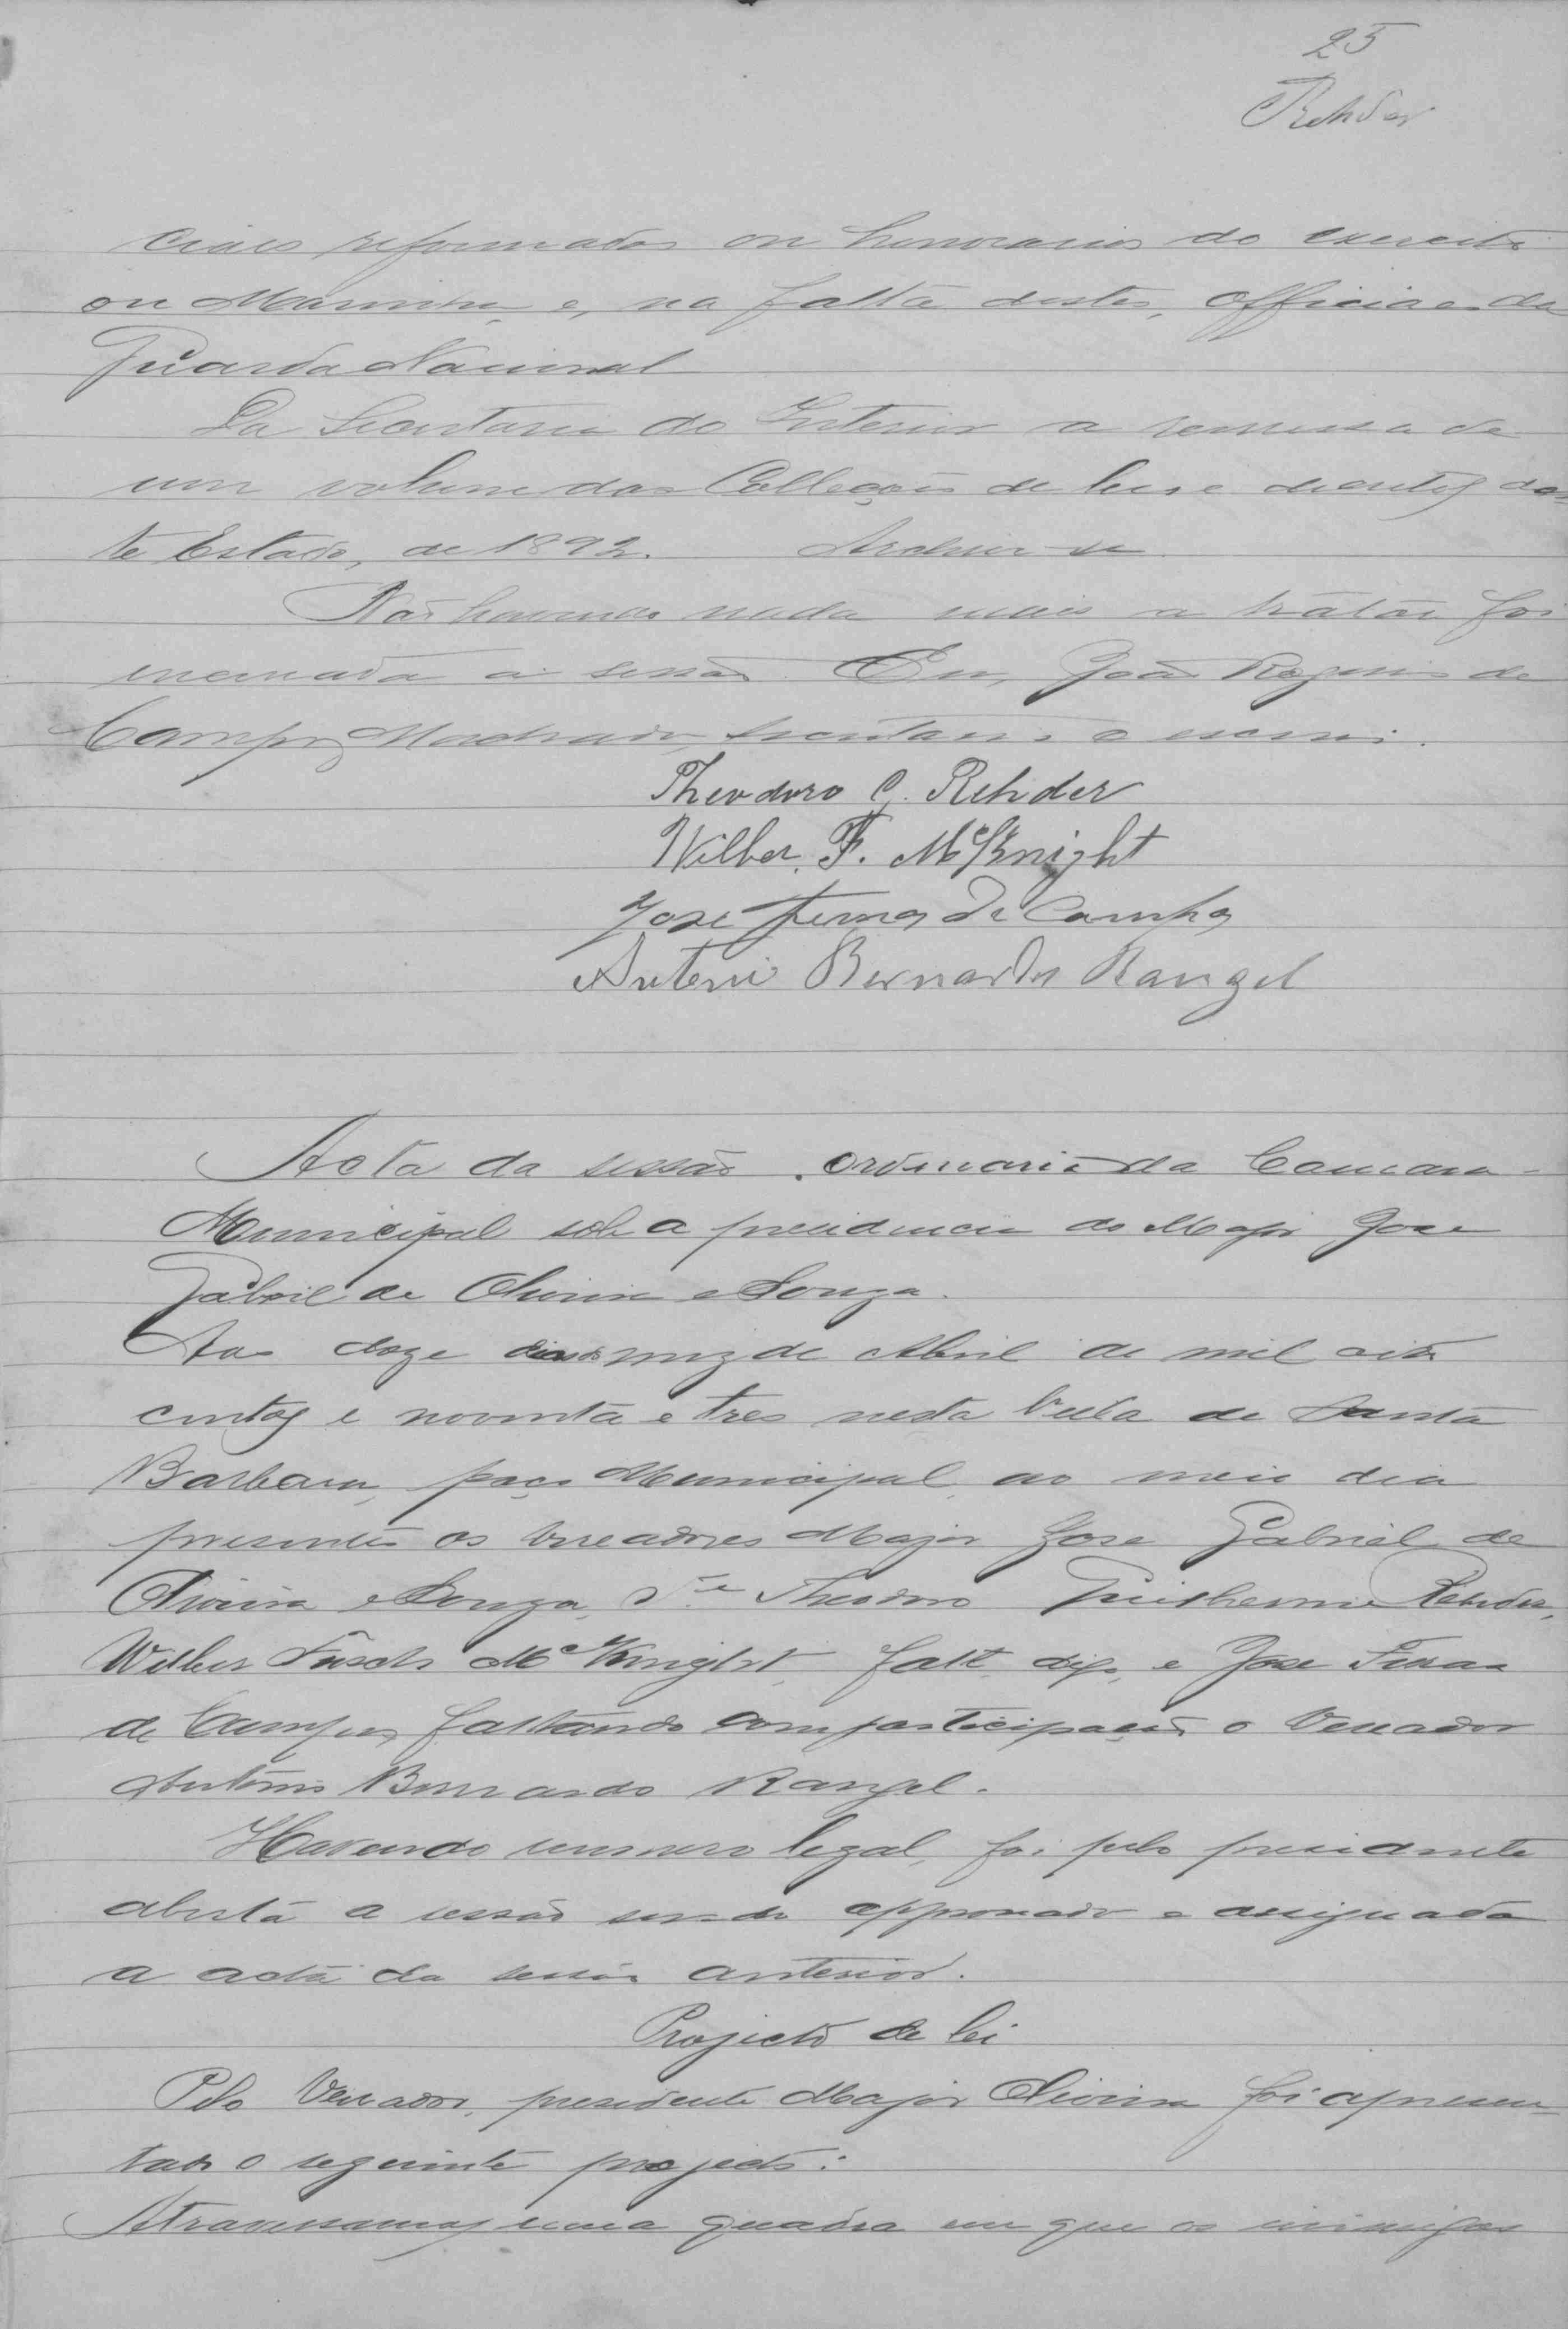 25
Rehder
ciaes reformados ou honorarios do exercito
ou Marinha, e, na falta destes, officiaes da
Guarda Nacional
Da Secretaria do Interior a remessa de
um volume das Collecções de leis e decretos des-
te Estado, de 1892. Archive-se
Não havendo nada mais a tratar foi
encerrada a sessão. Eu, João de
Campos Machado, secretario o escrevi.
Theodoro G. Rehder
Wilber. F. McKnight
Jose de Campos
Antonio Bernardo Rangel
Acta da sessão ordinaria da Camara
Municipal sob a presidencia do Major Jose
Gabriel de Oliveira e Souza.
Aos doze dias do mez de Abril de mil oito
centos e noventa e tres nesta Villa de Santa
Barbara, paço Municipal, ao meio dia
presentes os vereadores Major Jose Gabriel de
Oliveira e Souza, Theodoro Guilherme Rehder,
Wilber McKnight, falt digo, e Jose
de Campos, faltando com participação o Vereador
Antonio Bernardo Rangel.
Havendo numero legal, foi pelo presidente
aberta a sessão sendo approvado e assignada
a acta da sessão anterior.
Projecto de lei
Pelo Vereador, presidente Major Oliveira foi apresen-
tado o seguinte projecto:
Atravessamos uma quadra em que os inimigos